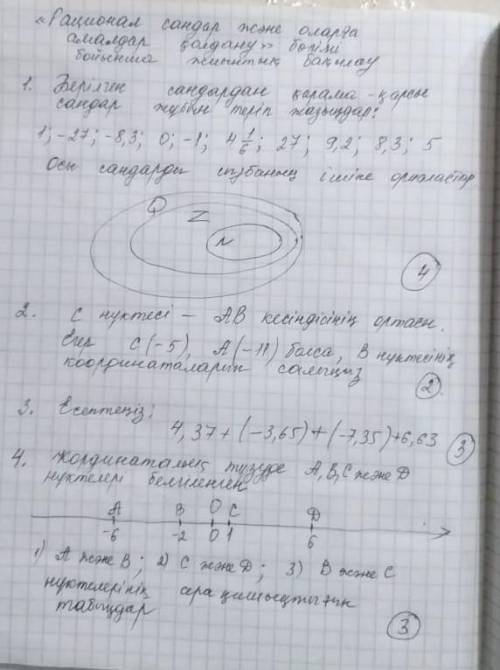 «Рационал сандар және оларға
амалдар қолдану» бөлімі
бойынша жиынтық бақылау
1. Берілген сандардан қарама-қарсы
сандар жұбын теріп жазыңдар:
1; -27; -8,3; 0; -1; 4 1/6; 27; 9,2; 8,3; 5
Осы сандарды сызбаның ішіне орналастыр
Q
Z
N
4
2. С нүктесі – АВ кесіндісінің ортасы.
Егер С(-5), А(-11) болса, В нүктесінің
координаталарын
2
3. Есептеңіз:
4,37+(-3,65)+(-7,35)+6,63
3
4. Координаталық түзуде А, В, С және D
нүктелері белгіленген
A B O C D
-6 -2 0 1 6
1) А және В; 2) С және D; 3) В және С
нүктелерінің ара қашықтығын
табыңдар
3